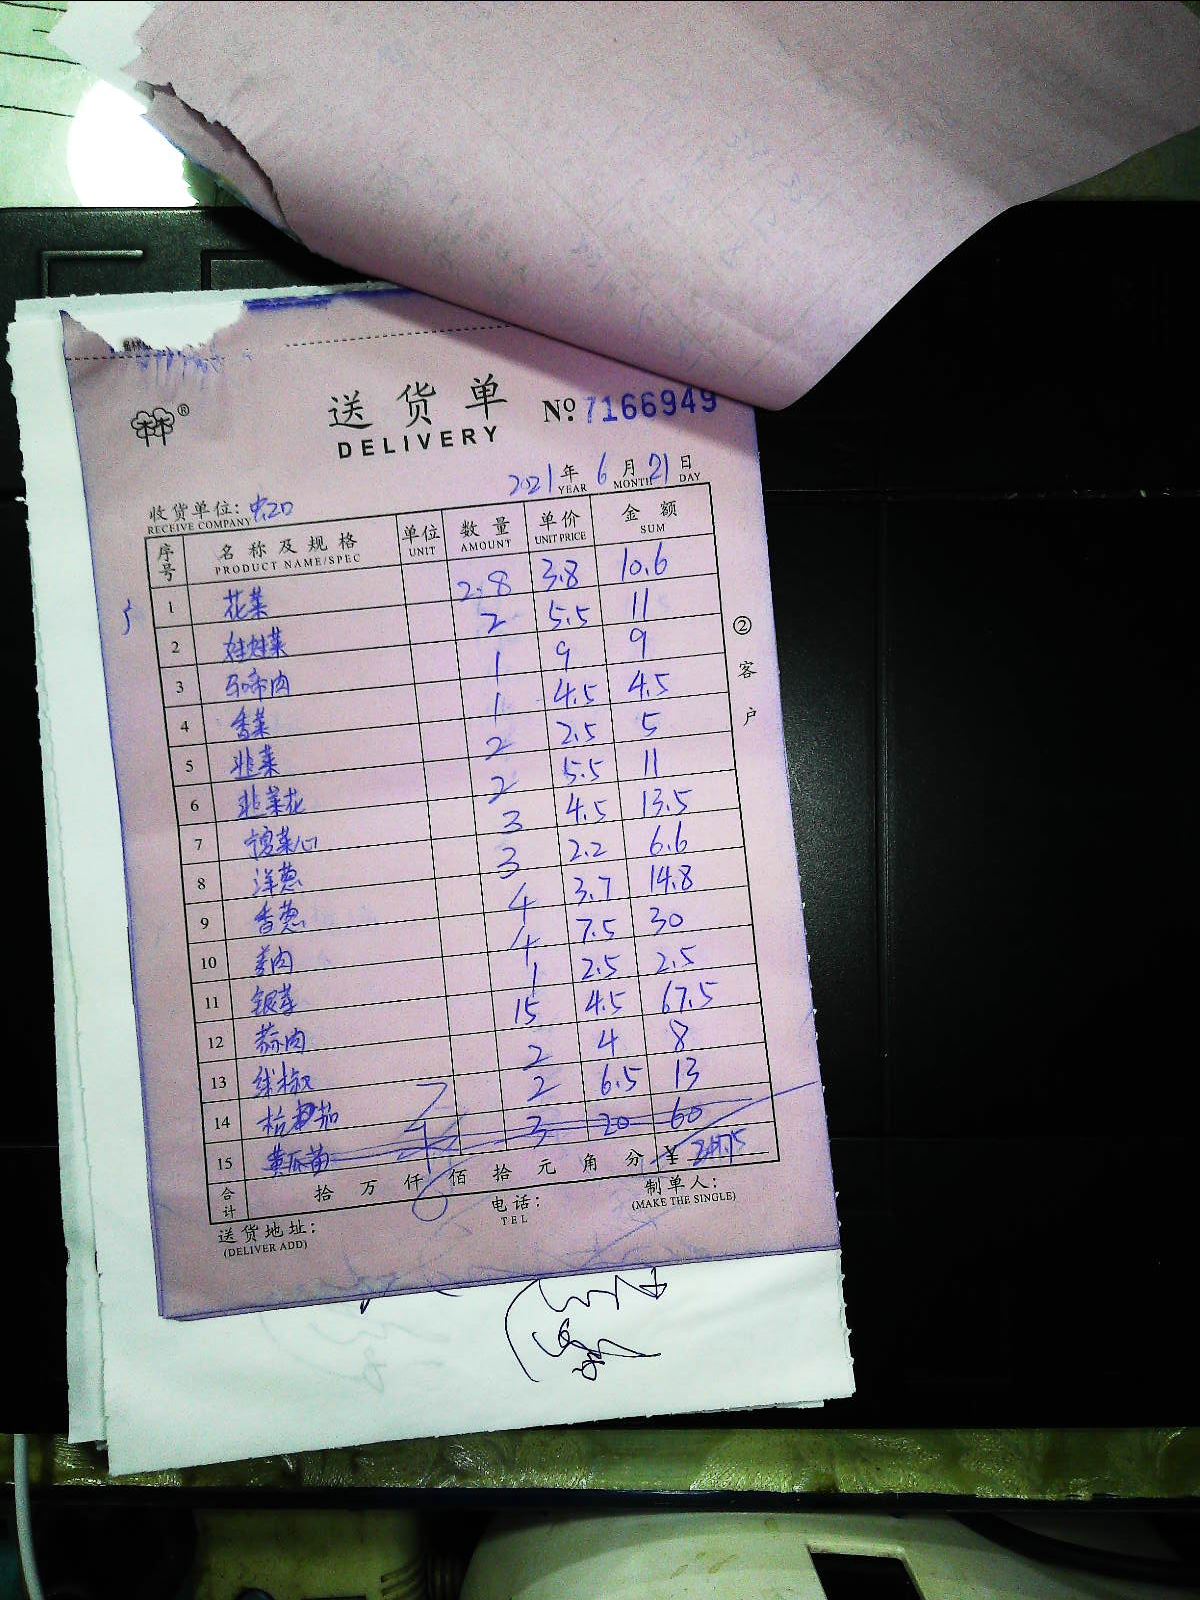 送货单 №7166949
DELIVERY
2021年 6月 21日
YEAR MONTH DAY
收货单位:
RECEIVE COMPANY
序号 名称及规格 单位 数量 单价 金额
PRODUCT NAME/SPEC UNIT AMOUNT UNIT PRICE SUM
1 花菜 2.8 3.8 10.6
2 娃娃菜 2 5.5 11
3 马蹄肉 1 9 9
4 香菜 1 4.5 4.5
5 韭菜 2 2.5 5
6 韭菜花 2 5.5 11
7 菜心 3 4.5 13.5
8 洋葱 3 2.2 6.6
9 香葱 4 3.7 14.8
10 姜肉 4 7.5 30
11 银芽 1 2.5 2.5
12 蒜肉 15 4.5 67.5
13 线椒 2 4 8
14 杭茄 2 6.5 13
15 黄瓜苗 3 20 60
合计 拾 万 仟 佰 拾 元 角 分 ¥
送货地址: 电话: 制单人:
(DELIVER ADD) TEL (MAKE THE SINGLE)
②客户